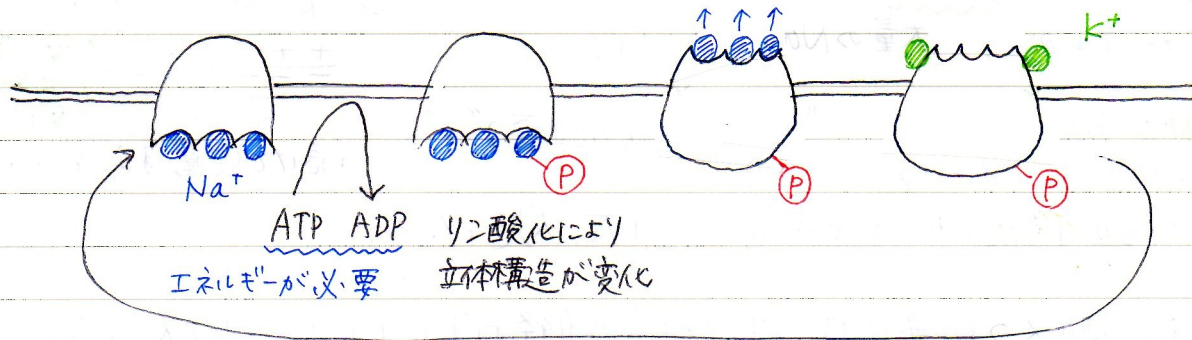 K⁺
Na⁺
P
P
P
ATP ADP
エネルギーが必要
リン酸化により
立体構造が変化